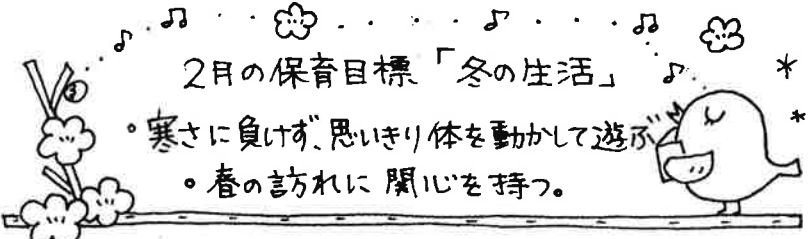 2月の保育目標「冬の生活」
。寒さに負けず、思いきり体を動かして遊ぶ
。春の訪れに関心を持つ。